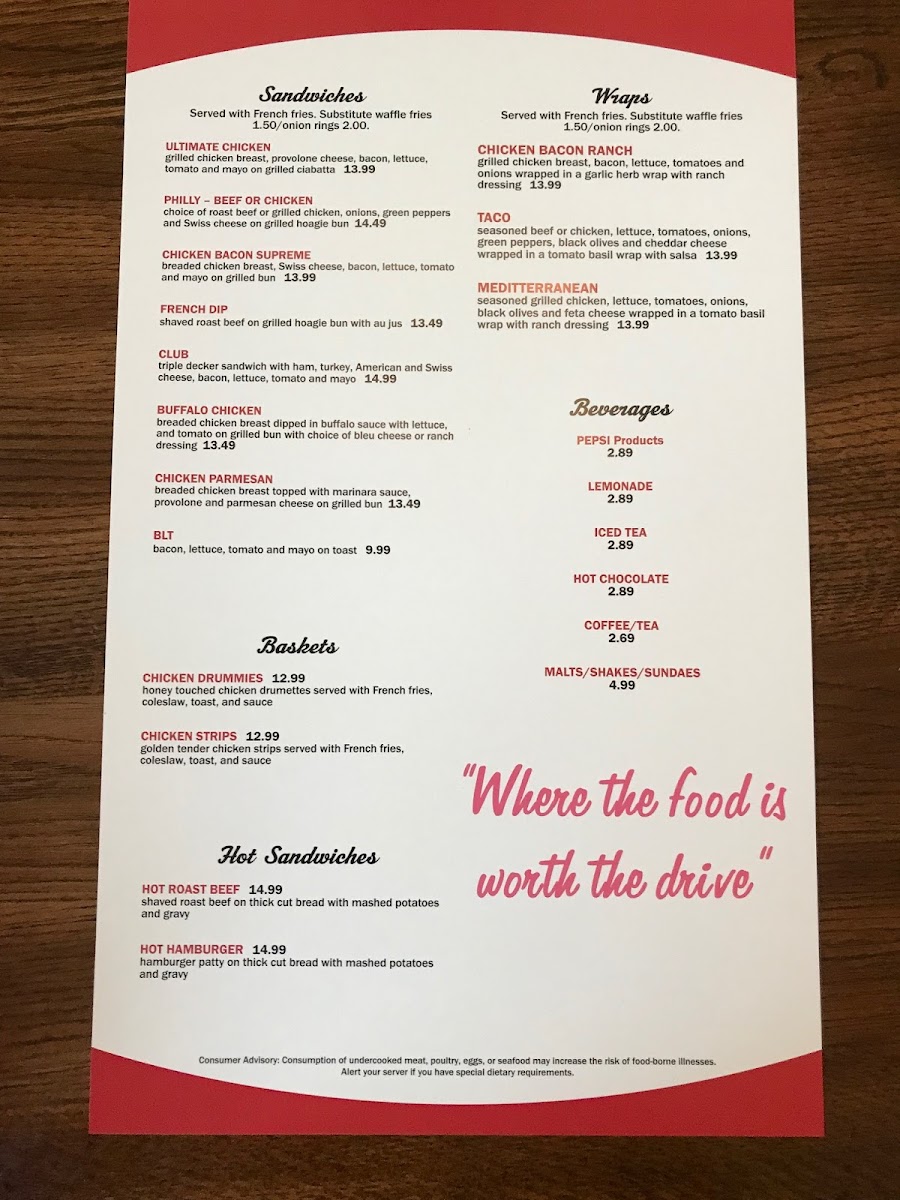 Sandwiches
Served with French fries. Substitute waffle fries
1.50/onion rings 2.00.
ULTIMATE CHICKEN
grilled chicken breast, provolone cheese, bacon, lettuce,
tomato and mayo on grilled ciabatta 13.99
PHILLY – BEEF OR CHICKEN
choice of roast beef or grilled chicken, onions, green peppers
and Swiss cheese on grilled hoagie bun 14.49
CHICKEN BACON SUPREME
breaded chicken breast, Swiss cheese, bacon, lettuce, tomato
and mayo on grilled bun 13.99
FRENCH DIP
shaved roast beef on grilled hoagie bun with au jus 13.49
CLUB
triple decker sandwich with ham, turkey, American and Swiss
cheese, bacon, lettuce, tomato and mayo 14.99
BUFFALO CHICKEN
breaded chicken breast dipped in buffalo sauce with lettuce,
and tomato on grilled bun with choice of bleu cheese or ranch
dressing 13.49
CHICKEN PARMESAN
breaded chicken breast topped with marinara sauce,
provolone and parmesan cheese on grilled bun 13.49
BLT
bacon, lettuce, tomato and mayo on toast 9.99
Baskets
CHICKEN DRUMMIES 12.99
honey touched chicken drumettes served with French fries,
coleslaw, toast, and sauce
CHICKEN STRIPS 12.99
golden tender chicken strips served with French fries,
coleslaw, toast, and sauce
Hot Sandwiches
HOT ROAST BEEF 14.99
shaved roast beef on thick cut bread with mashed potatoes
and gravy
HOT HAMBURGER 14.99
hamburger patty on thick cut bread with mashed potatoes
and gravy
Wraps
Served with French fries. Substitute waffle fries
1.50/onion rings 2.00.
CHICKEN BACON RANCH
grilled chicken breast, bacon, lettuce, tomatoes and
onions wrapped in a garlic herb wrap with ranch
dressing 13.99
TACO
seasoned beef or chicken, lettuce, tomatoes, onions,
green peppers, black olives and cheddar cheese
wrapped in a tomato basil wrap with salsa 13.99
MEDITTERRANEAN
seasoned grilled chicken, lettuce, tomatoes, onions,
black olives and feta cheese wrapped in a tomato basil
wrap with ranch dressing 13.99
Beverages
PEPSI Products
2.89
LEMONADE
2.89
ICED TEA
2.89
HOT CHOCOLATE
2.89
COFFEE/TEA
2.69
MALTS/SHAKES/SUNDAES
4.99
"Where the food is
worth the drive"
Consumer Advisory: Consumption of undercooked meat, poultry, eggs, or seafood may increase the risk of food-borne illnesses.
Alert your server if you have special dietary requirements.